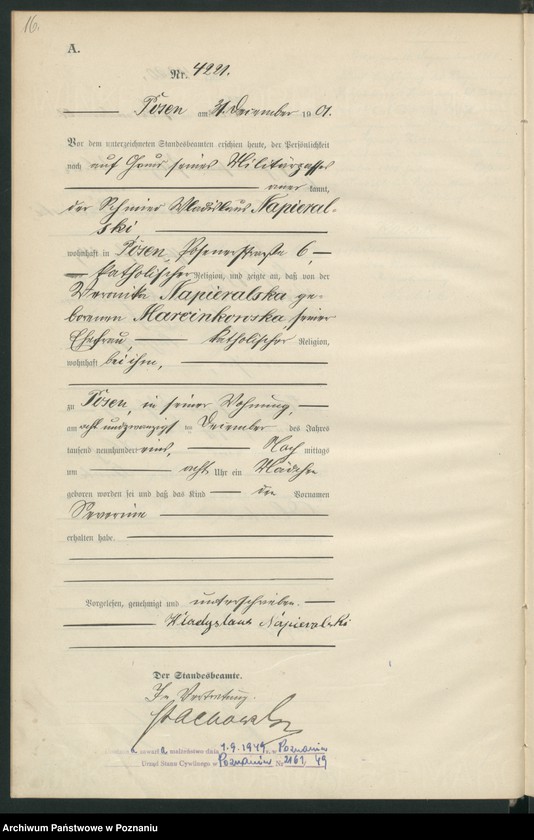 16.
A.
Nr. 4221.
Posen am 31. Dezember 1901.
Vor dem unterzeichneten Standesbeamten erschien heute, der Persönlichkeit
nach auf Grund seines Militärpasses
aner kannt,
der Schmied Wladislaus Napieral-
ski
wohnhaft in Posen, Posenerstraße 6,
katholischer Religion, und zeigte an, daß von der
Veronika Napieralska ge-
borenen Marcinkowska, seiner
Ehefrau, katholischer Religion,
wohnhaft bei ihm,
zu Posen, in seiner Wohnung,
am acht und zwanzigst en Dezember des Jahres
tausend neunhundert eins, Nach mittags
um acht Uhr ein Mädchen
geboren worden sei und daß das Kind den Vornamen
Severine
erhalten habe.
Vorgelesen, genehmigt und unterschrieben.
Wladyslaus Napieralski
Der Standesbeamte.
In Vertretung.
a zawarła małżeństwo dnia 1.9.1949 r. w Poznaniu
Urząd Stanu Cywilnego w Poznaniu Nr 2161/49
Archiwum Państwowe w Poznaniu